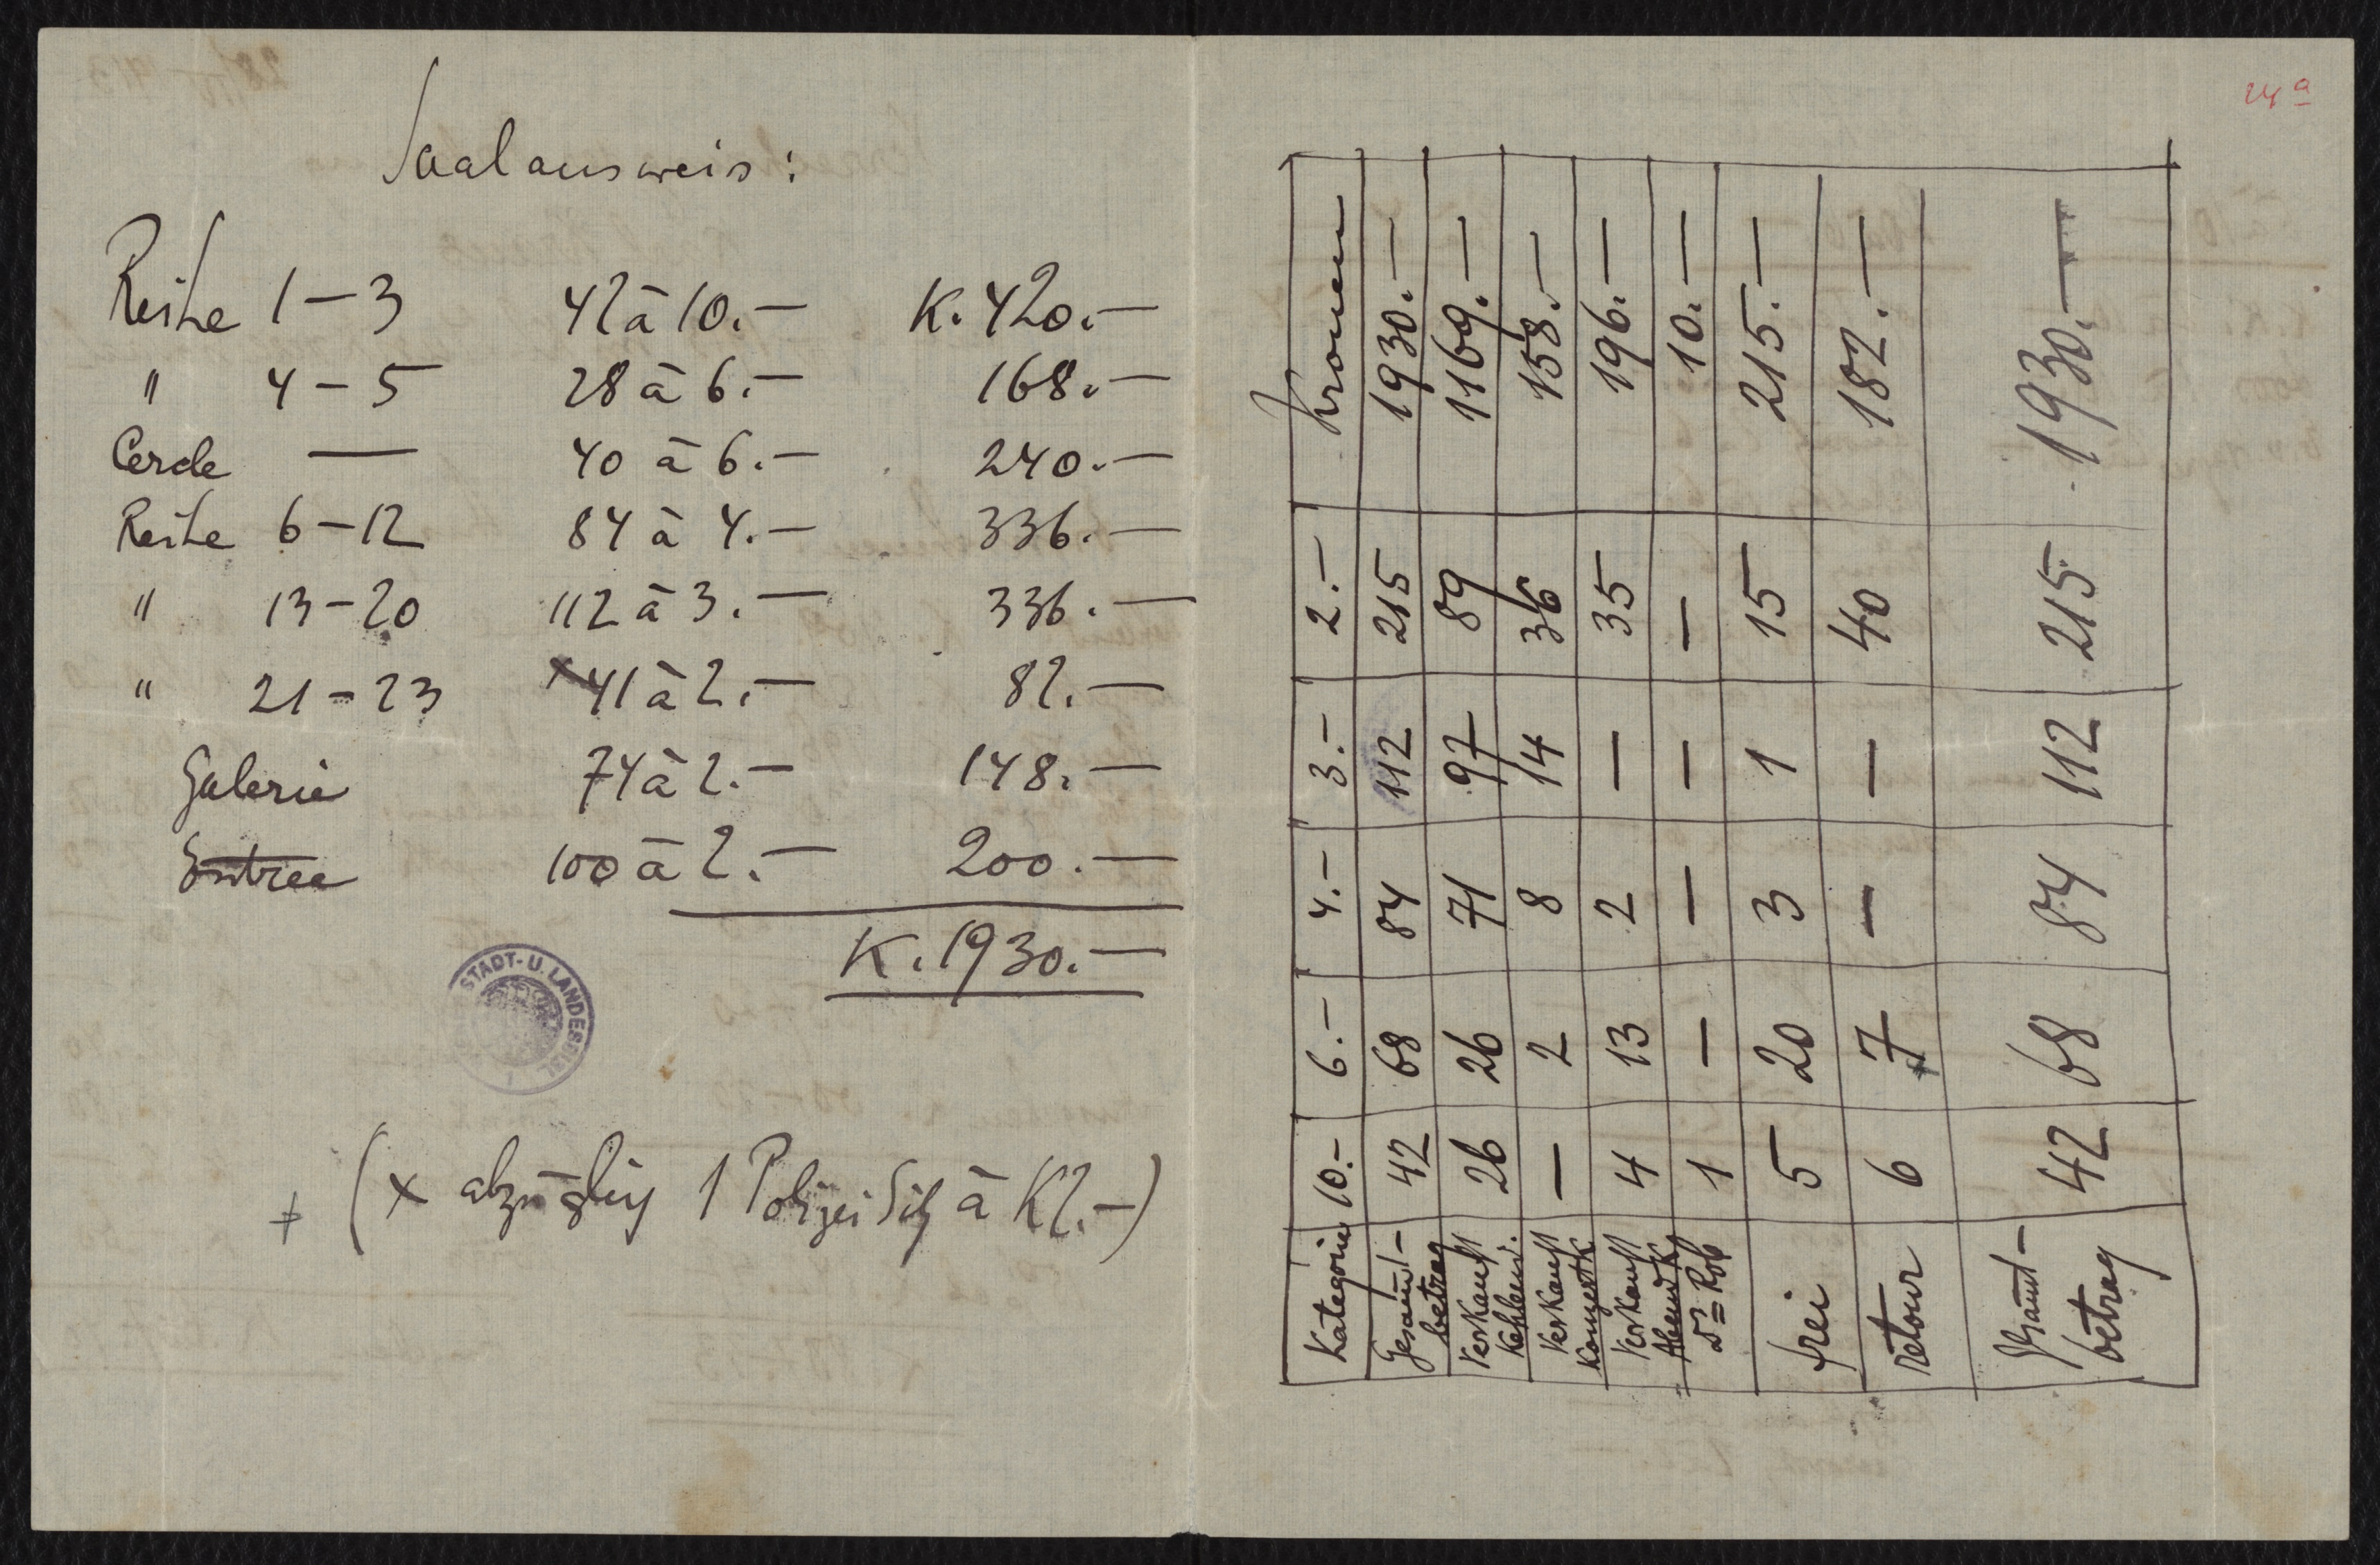 24 a
Saalausweis:
Reihe 1 – 3 42 à 10.— K. 420.—
" 4 – 5 28 à 6.— 168.—
Cercle — 40 à 6.— 240.—
Reihe 6 – 12 84 à 4.— 336.—
" 13 – 20 112 à 3.— 336.—
" 21 – 23 x 41 à 2.— 82.—
Galerie 74 à 2.— 148.—
Entree 100 à 2.— 200.—
K. 1930.—
STADT- U. LANDESBIBL
+ (x abzüglich 1 Polizei Sitz à K 2.—)
Kategorie 10.— 6.— 4.— 3.— 2.— Kronen
Gesamt- betrag 42 68 84 112 215 1930.—
Verkauf Kehlend. 26 26 71 97 89 1169.—
Verkauf Konzert K — 2 8 14 36 158.—
Verkauf Abend K 4 13 2 — 35 196.—
Dr Rob 1 — — — — 10.—
frei 5 20 3 1 15 215.—
retour 6 7 — — 40 182.—
Gesamt- betrag 42 68 84 112 215 1930.—